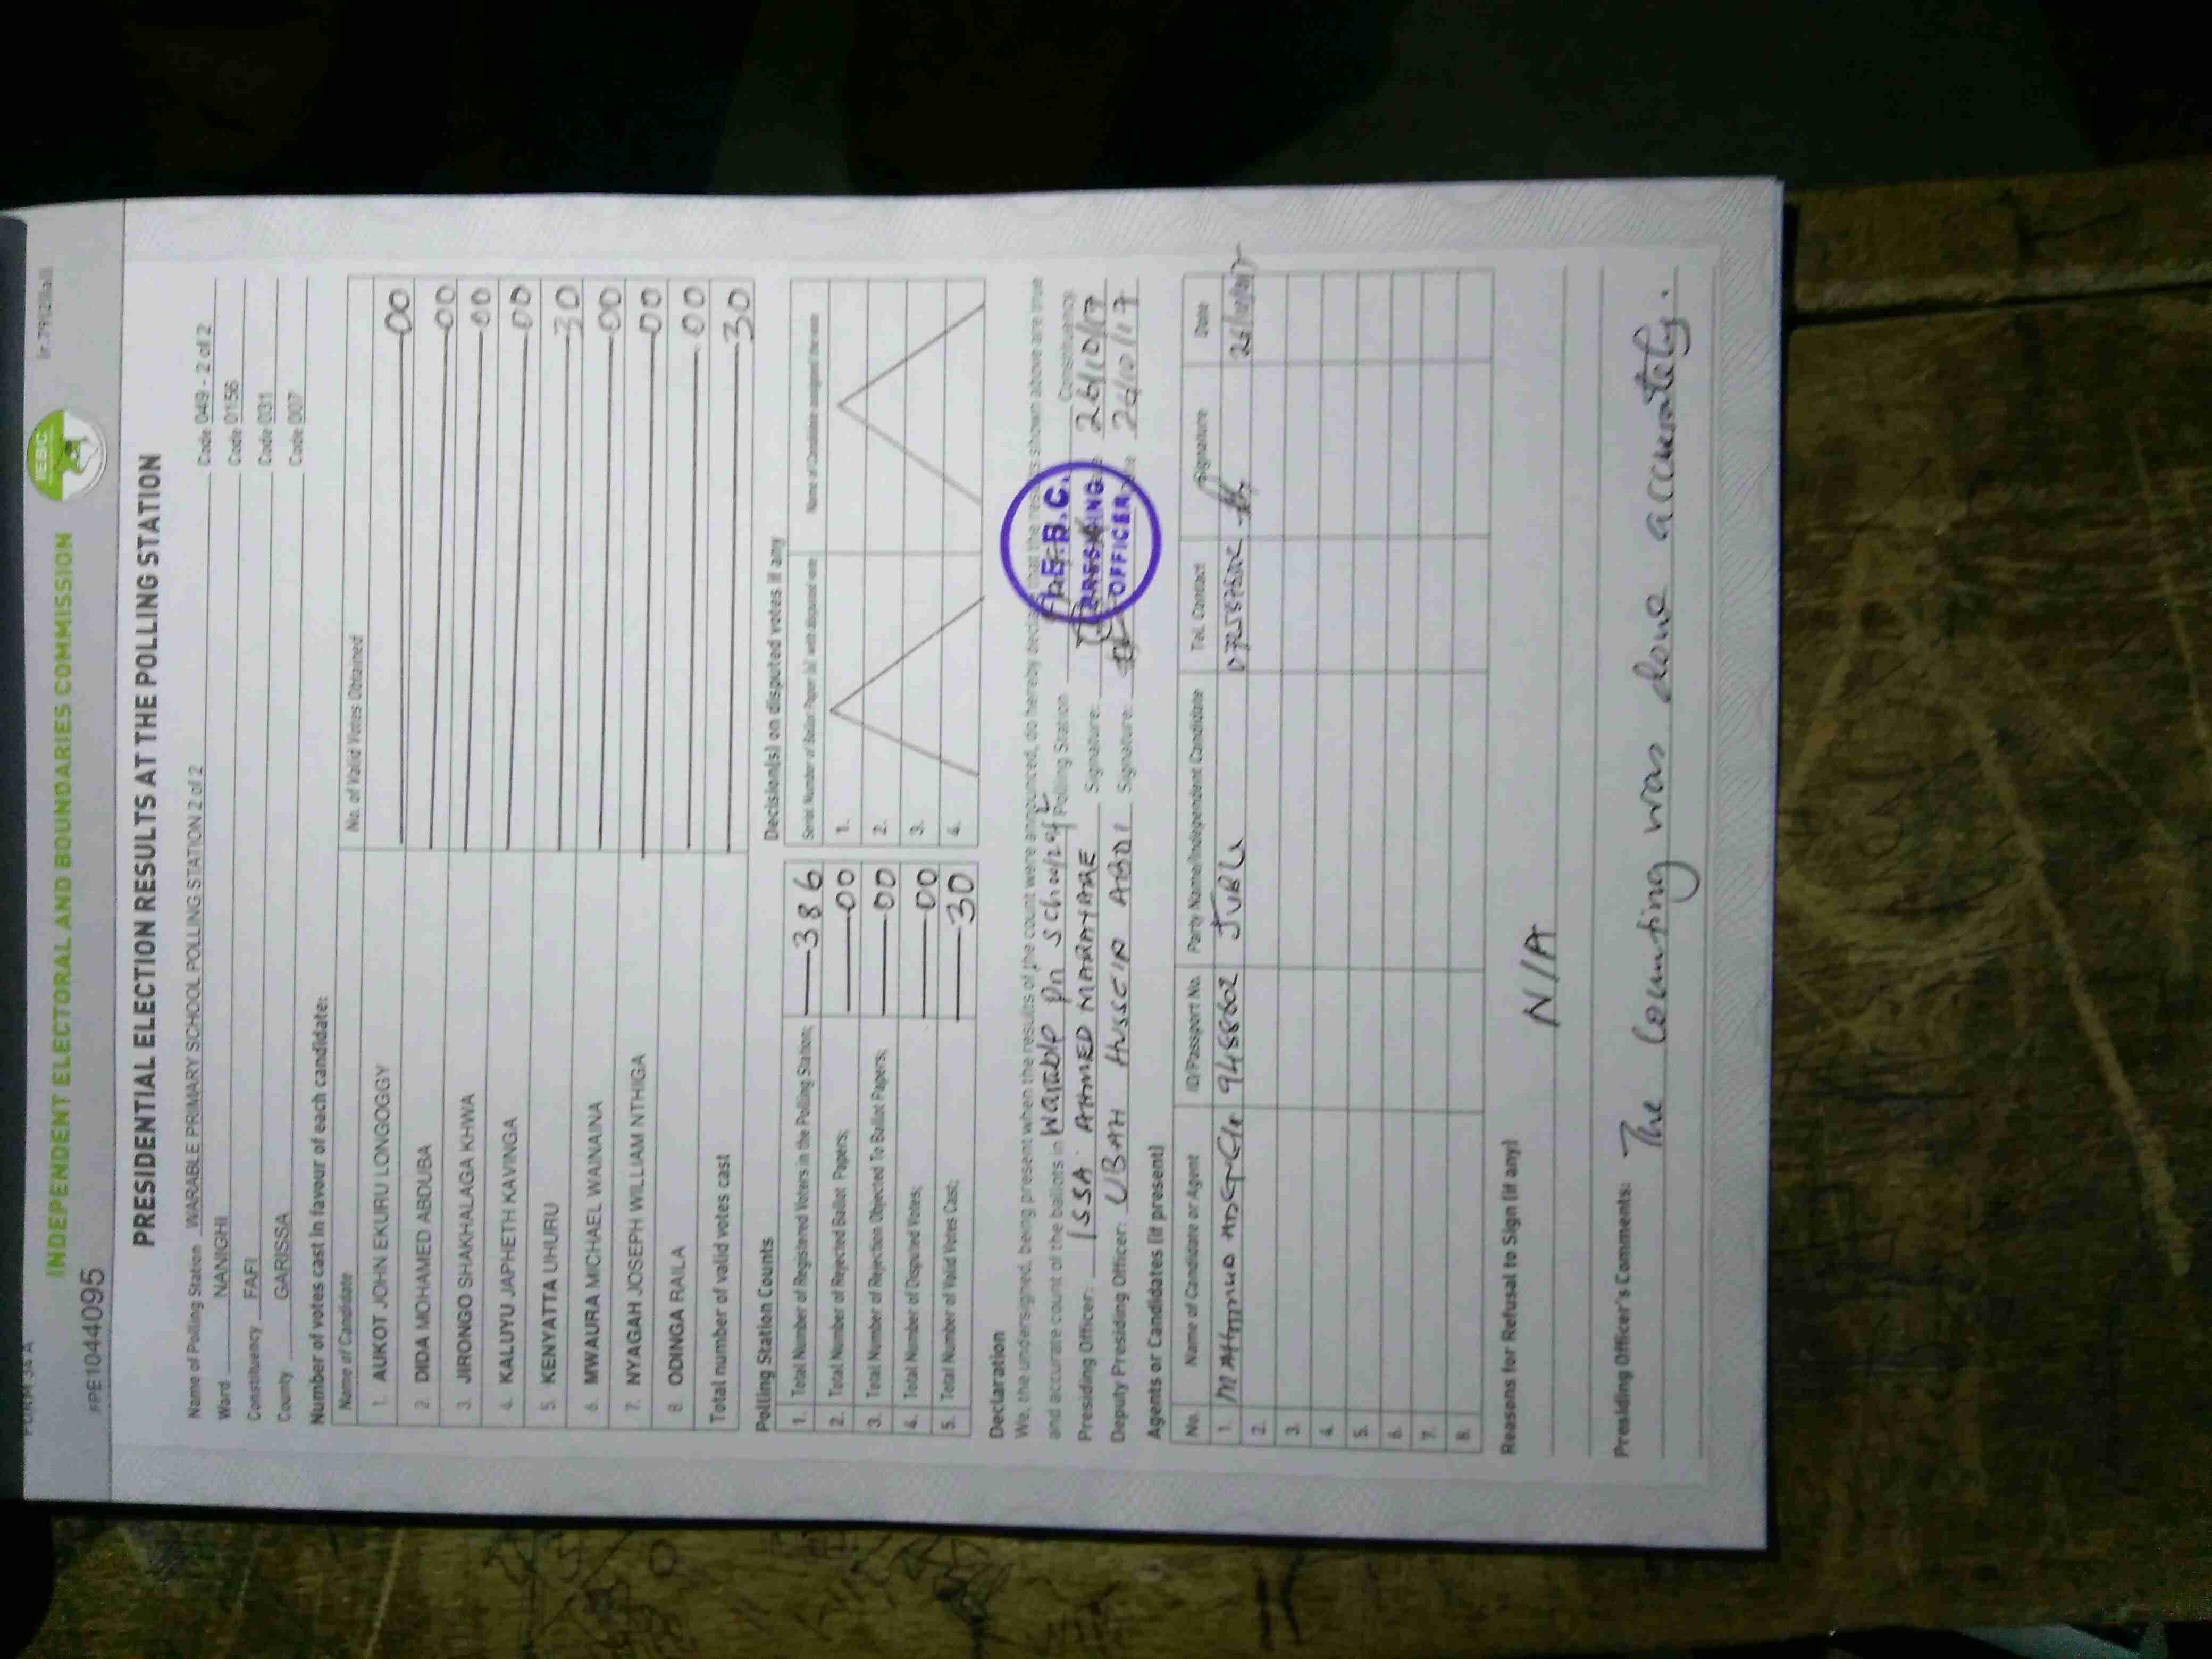 FORM 34 A
INDEPENDENT ELECTORAL AND BOUNDARIES COMMISSION
IEBC
PRE1044095
PRESIDENTIAL ELECTION RESULTS AT THE POLLING STATION
Name of Polling Station WARABLE PRIMARY SCHOOL POLLING STATION 2 of 2 Code 049 - 2 of 2
Ward NANIGHI Code 0156
Constituency FAFI Code 031
County GARISSA Code 007
Number of votes cast in favour of each candidate:
Name of Candidate No. of Valid Votes Obtained
1. AUKOT JOHN EKURU LONGOGGY 00
2. DIDA MOHAMED ABDUBA 00
3. JIRONGO SHAKHALAGA KHWA 00
4. KALUYU JAPHETH KAVINGA 00
5. KENYATTA UHURU 30
6. MWAURA MICHAEL WAINAINA 00
7. NYAGAH JOSEPH WILLIAM NTHIGA 00
8. ODINGA RAILA 00
Total number of valid votes cast 30
Polling Station Counts
1. Total Number of Registered Voters in the Polling Station; 386
2. Total Number of Rejected Ballot Papers; 00
3. Total Number of Rejection Objected To Ballot Papers; 00
4. Total Number of Disputed Votes; 00
5. Total Number of Valid Votes Cast; 30
Decision(s) on disputed votes if any
Serial Number of Ballot Paper (s) with disputed vote Name of Candidate assigned the vote
1.
2.
3.
4.
Declaration
We, the undersigned, being present when the results of the count were announced, do hereby declare that the results shown above are true
and accurate count of the ballots in Warable Pri School 2 of 2 Polling Station Constituency.
Presiding Officer: ISSA AHMED Signature: 26/10/17
Deputy Presiding Officer: UBAH HUSSEIN ABDI Signature: 26/10/17
I.E.B.C.
PRESIDING
OFFICER
Agents or Candidates (if present)
No. Name of Candidate or Agent ID/Passport No. Party Name/Independent Candidate Tel. Contact Signature Date
1. JUBLE
2.
3.
4.
5.
6.
7.
8.
Reasons for Refusal to Sign (if any)
N/A
Presiding Officer's Comments: The Counting was done accurately.